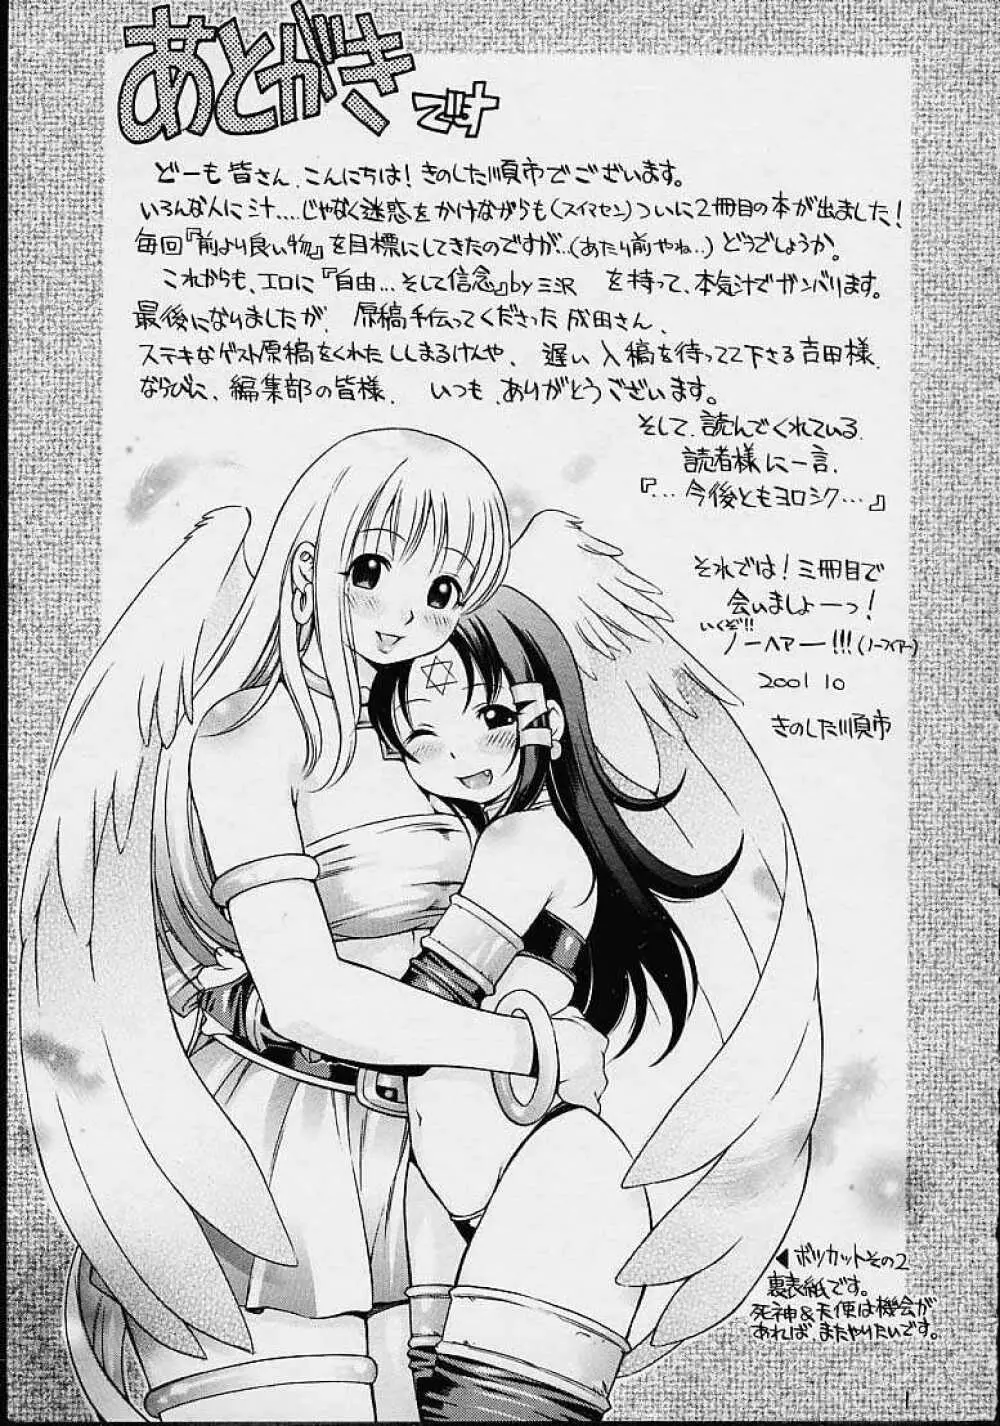 あとがきです
どーも皆さん、こんにちは!きのした順市でございます。
いろんな人に三汁....じゃなく迷惑をかけながらも(スイマセン)ついに2冊目の本が出ました!
毎回『前より良い物』を目標にしてきたのですが...(あたり前やね..)どうでしょうか。
これからも、エロに『自由...そして信念』by三沢 を持って、本気汁でガンバります。
最後になりましたが、原稿手伝ってくださった成田さん、
ステキなゲスト原稿をくれたししまるけんや、遅い入稿を待ってて下さる吉田様、
ならびに、編集部の皆様、いつもありがとうございます。
そして、読んでくれている
読者様に一言、
『...今後ともヨロシク...』
それでは!三冊目で
会いましょーっ!
いくぞ!!
ノーヘァー!!!(ノーフィアー)
2001 10
きのした順市
◀ボツカットその2
裏表紙です。
死神&天使は機会が
あれば、またやりたいです。